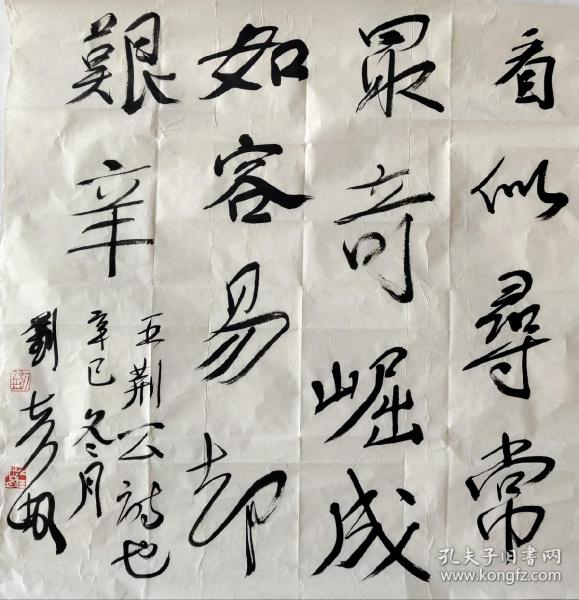 看似尋常
最奇崛成
如容易却
艱辛
王荆公詩也
辛巳冬月
劉
孔夫子旧书网
www.kongfz.com